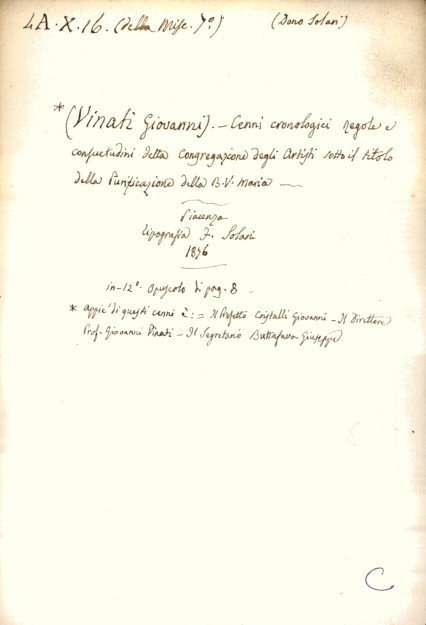 4A.X.16. (della Misc. 7º) (Dono Solari)
* (Vinati Giovanni). - Cenni cronologici regole e
consuetudini della Congregazione degli Artisti sotto il titolo
della Purificazione della B. V. Maria
Piacenza
tipografia F. Solari
1876
in-12º. opuscolo di pag. 8
* Appie' di questi cenni è: = Il Prefetto Cristalli Giovanni - Il Direttore
Prof. Giovanni Vinati - Il Segretario Buttafava Giuseppe
C